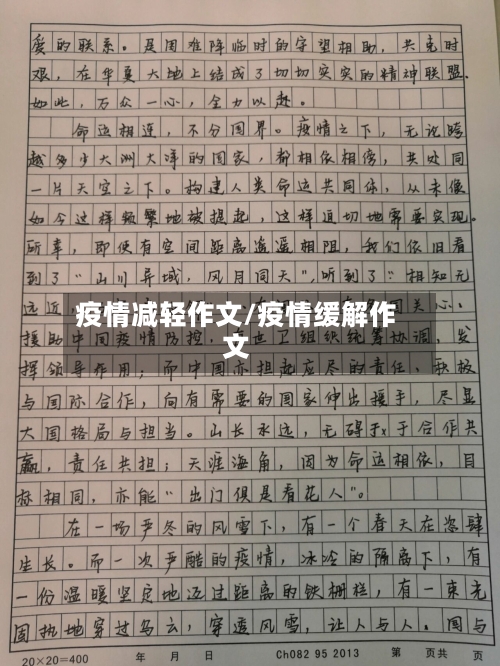 爱的联系。是困难降临时的守望相助，共克时
艰，在华夏大地上结成了切切实实的精神联盟。
如此，万众一心，全力以赴。
命运相连，不分国界。疫情之下，无论跨
越多少大洲大洋的国家，都相依相傍，共处同
一片天空之下。构建人类命运共同体，从未像
如今这样频繁地被提起，这样迫切地需要实现。
所幸，即使有空间距离遥遥相阻，我们依旧看
到了“山川异域，风月同天”，听到了“相知无
远近，
疫情减轻作文/疫情缓解作
文
援助中国疫情防控，世卫组织统筹协调，发
挥领导作用；而中国亦担起应尽的责任，积极
与国际合作，向有需要的国家伸出援手，尽显
大国格局与担当。山长水远，无碍于于合作共
赢，责任共担；天涯海角，因为命运相依，目
标相同，亦能“出门俱是看花人”。
在一场严冬的风雪下，有一个春天在恣肆
生长。而一次严酷的疫情，冰冷的隔离下，有
一份温暖坚定地迈过距离的铁栅栏，有一束光
固执地穿过乌云，穿透风雪，让人与人。国与
20×20=400 年 月 日 Ch082 95 2013 第 页共 页